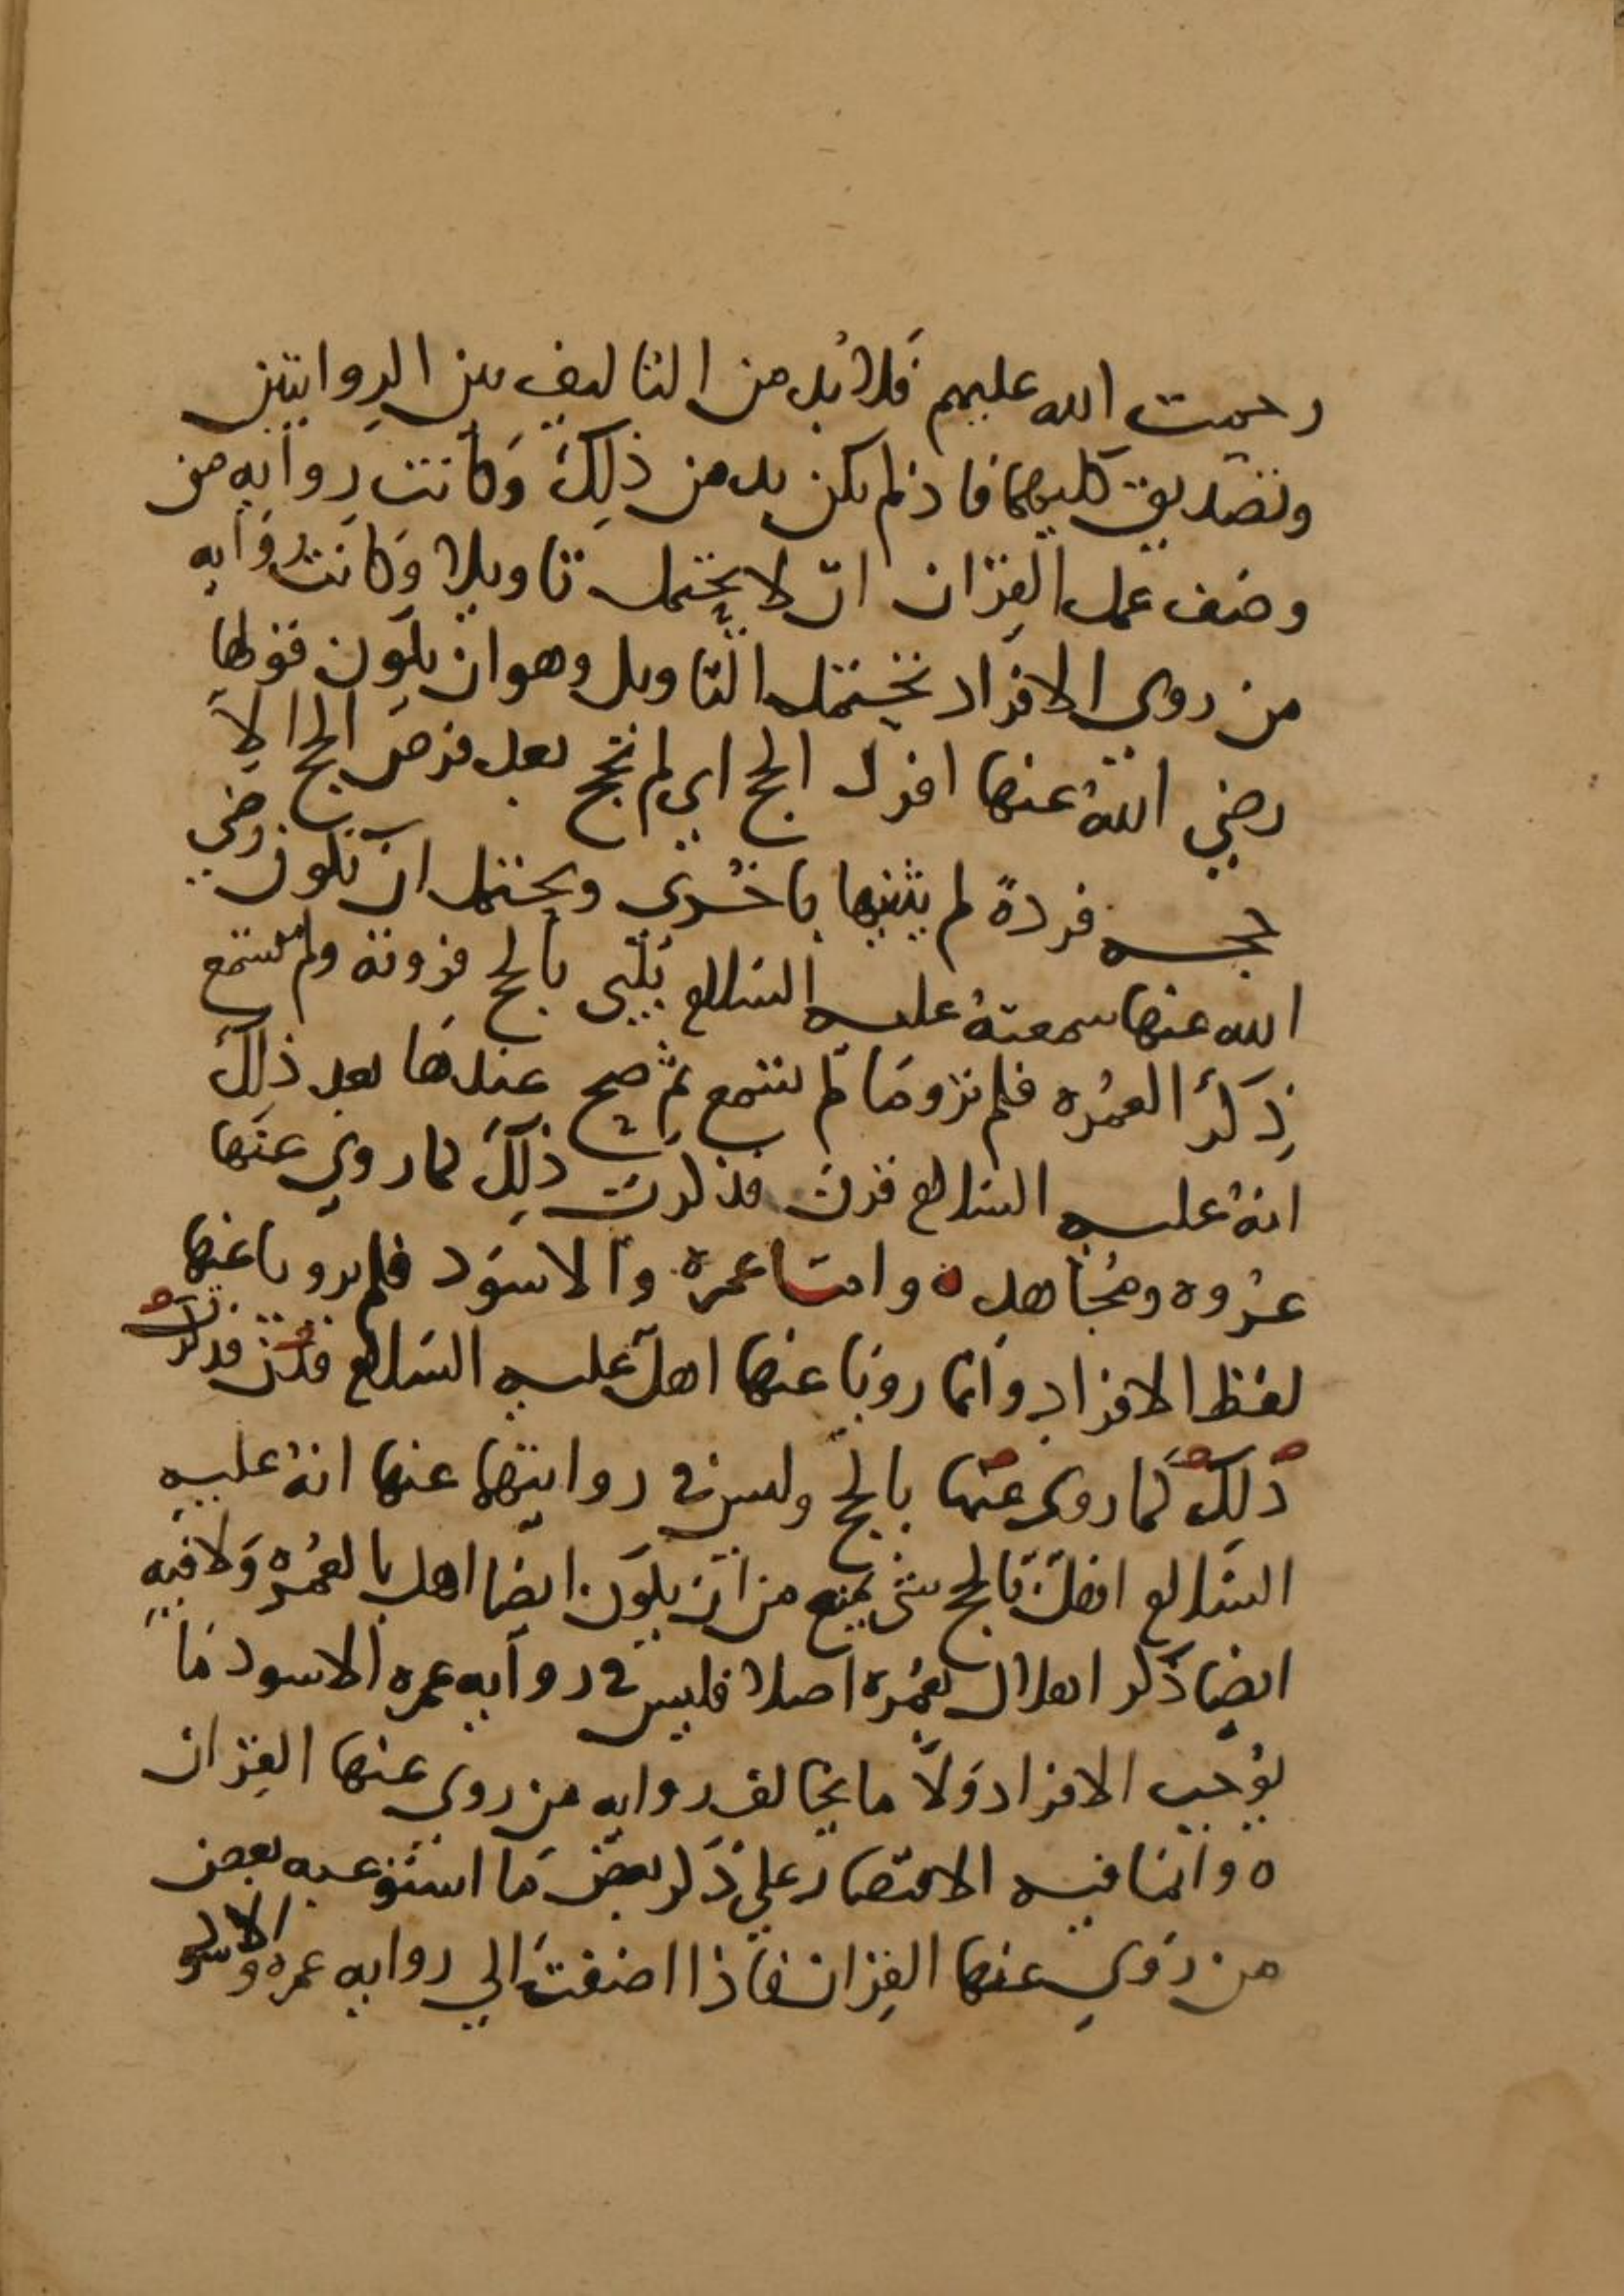 رحمت الله عليهم فلا بد من التاليف بين الروايتين
وتصديق كليهما فاذ لم يكن بد من ذلك وكانت رواية من
وصف عمل القران ان لا يحتمل تاويلا وكانت رواية
من روى الافراد تحتمل التاويل وهو ان يكون قولها
رضي الله عنها افرد الحج اي لم يحج بعد فرض الحج الا
حجه فردة لم يثنيها باخري ويحتمل ان تكون رضي
الله عنها سمعته عليه السلام يلبي بالحج فروته ولم تسمع
ذكر العمره فلم ترو ما لم تسمع ثم صح عندها بعد ذلك
انه عليه السلام قرن فذكرت ذلك كما روي عنها
عروه ومجاهد ه واما عمره والاسود فلم يرويا عنها
لفظ الافراد وانما رويا عنها اهل عليه السلام قرن فذكرت
ذلك كما روى عنها بالحج وليس في روايتهما عنها انه عليه
السلام اهل بالحج شى يمنع من ان يكون ايضا اهل بالعمره ولا فيه
ايضا ذكر اهلال بعمره اصلا فليس في روايه عمره الاسود ما
يوجب الافراد ولا ما يخالف روايه من روى عنها القران
ه وانما فيه الاقتصار علي ذكر بعض ما استوعبه بعض
من روي عنها القران فاذا اضفت الي روايه عمره والاسود